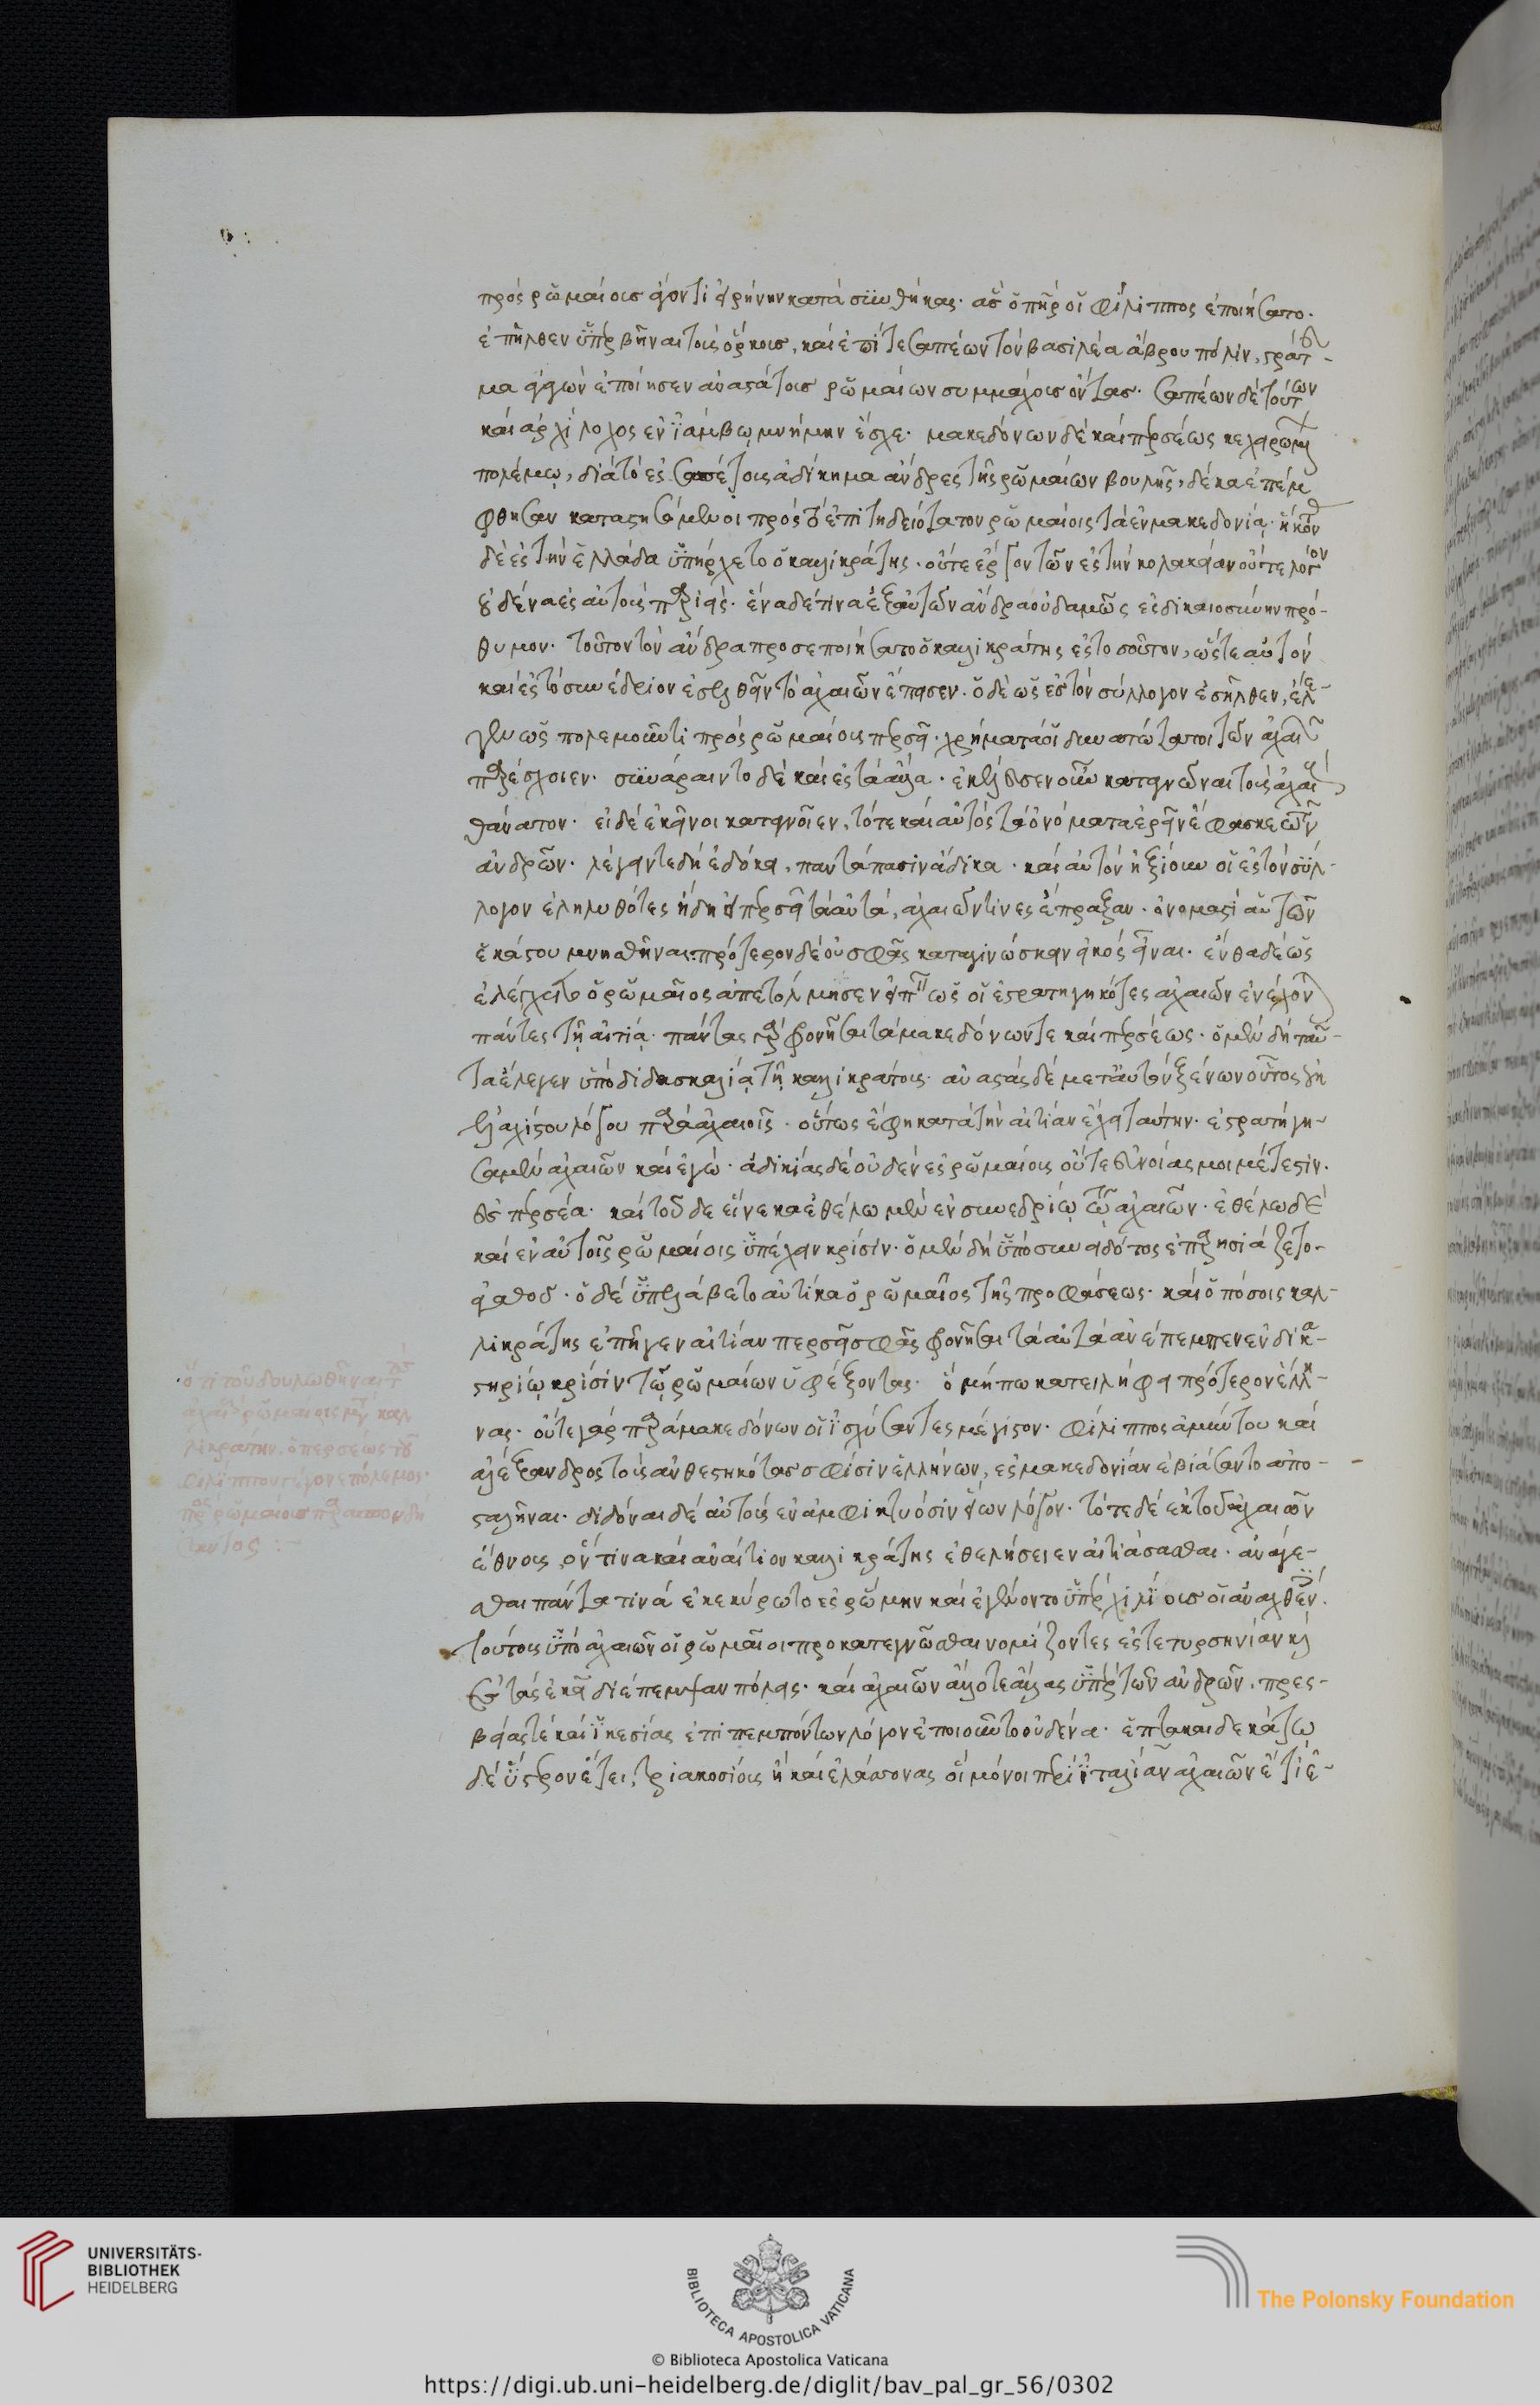 πρὸς ῥωμαίους ἄγοντι εἰρήνην κατὰ συνθήκας· ἃς ὁ πατὴρ οἱ φίλιππος ἐποιήσατο·
ἐπῆλθεν ὑπερβῆναι τοὺς ὅρκους, καὶ ἐπί τε σαπέων τὸν βασιλέα ἀβρουπόλιν, στράτευ-
μα ἀγαγὼν ἐποίησεν ἀναστάτους ῥωμαίων συμμάχους ὄντας· σαπέων δὲ τούτων
καὶ ἀρχίλοχος ἐν ἰάμβῳ μνήμην ἔσχε· μακεδόνων δὲ καὶ περσέως κεχειρωμένων
πολέμῳ, διὰ τὸ ἐς σαπέους ἀδίκημα ἄνδρες τῆς ῥωμαίων βουλῆς, δέκα ἐπέμ
φθησαν καταστησόμενοι πρὸς τὸ ἐπιτηδειότατον ῥωμαίοις τὰ ἐν μακεδονίᾳ· ἥκουσι
δὲ ἐς τὴν ἑλλάδα ὑπήρχετο ὁ καλλικράτης· οὔτε ἔργον τῶν ἐς τὴν κολακείαν οὔτε λόγον
οὐδένα ἐς αὐτοὺς παριείς· ἕνα δέ τινα ἐξ αὐτῶν ἄνδρα οὐδαμῶς ἐς δικαιοσύνην πρό-
θυμον· τοῦτον τὸν ἄνδρα προσεποιήσατο ὁ καλλικράτης ἐς τοσοῦτον, ὥστε αὐτὸν
καὶ ἐς τὸ συνέδριον ἐσελθεῖν τὸ ἀχαιῶν ἔπεισεν· ὁ δὲ ὡς ἐς τὸν σύλλογον ἐσῆλθεν, ἔλε-
γεν ὡς πολεμοῦντι πρὸς ῥωμαίους περσεῖ· χρήματα οἱ δυνατώτατοι τῶν ἀχαιῶν
παράσχοιεν· συνάραιντο δὲ καὶ ἐς τὰ ἄλλα· ἐκέλευσεν οὖν καταγνῶναι τοὺς ἀχαιοὺς
θάνατον· εἰ δὲ ἐκεῖνοι καταγνοῖεν, τότε καὶ αὐτὸς τὰ ὀνόματα ἐρεῖν ἔφασκε τῶν
ἀνδρῶν· λέγειν τε δὴ ἐδόκει, παντάπασιν ἄδικα· καὶ αὐτὸν ἠξίουν οἱ ἐς τὸν σύλ-
λογον ἐληλυθότες ἤδη εἰ περσεῖ τὰ αὐτὰ, ἀχαιῶν τινες ἔπραξαν· ὀνομαστὶ αὐτῶν
ἑκάστου μνησθῆναι· πρότερον δὲ οὐ σφᾶς καταγινώσκειν εἰκὸς εἶναι· ἐνθαδέ ὡς
ἐλέγχετο ὁ ῥωμαῖος ἀπετόλμησεν εἰπεῖν ὡς οἱ ἐστρατηγηκότες ἀχαιῶν ἐνέχονται
πάντες τῇ αἰτίᾳ· πάντας γὰρ φρονῆσαι τὰ μακεδόνων τε καὶ περσέως· ὁ μὲν δὴ ταῦ-
τα ἔλεγεν ὑπὸ διδασκαλίᾳ τῇ καλλικράτους· ἀναστὰς δὲ μετ' αὐτὸν ξένων οὗτος γὰρ
ἐλαχίστου λόγου παρὰ ἀχαιοῖς· οὕτως ἔφη κατὰ τὴν αἰτίαν ἔχει ταύτην· ἐστρατήγη-
σα μὲν ἀχαιῶν καὶ ἐγώ· ἀδικίας δὲ οὐδὲν ἐς ῥωμαίους οὔτε εὐνοίας μοι μέτεστιν·
ἐς περσέα· καὶ τοῦδε εἵνεκα ἐθέλω μὲν ἐν συνεδρίῳ τῷ ἀχαιῶν· ἐθέλω δὲ
καὶ ἐν αὐτοῖς ῥωμαίοις ὑπέχειν κρίσιν· ὁ μὲν δὴ ὑπὸ συνειδότος ἐπαρρησιάζετο
ἀγαθοῦ· ὁ δὲ ὑπελάβετο αὐτίκα ὁ ῥωμαῖος τῆς προφάσεως· καὶ ὁπόσοις καλ-
λικράτης ἐπῆγεν αἰτίαν περσεῖ σφᾶς φρονῆσαι τὰ αὐτὰ ἀνέπεμπεν ἐν δικα-
στηρίῳ κρίσιν τῷ ῥωμαίων ὑφέξοντας· ὃ μήπω κατειλήφει πρότερον ἕλλη-
νας· οὔτε γὰρ παρὰ μακεδόνων οἱ ἰσχύσαντες μέγιστον· φίλιππος ἀμύντου καὶ
ἀλέξανδρος τοὺς ἀνθεστηκότας σφίσιν ἑλλήνων, ἐς μακεδονίαν ἐβιάσαντο ἀπο-
σταλῆναι· διδόναι δὲ αὐτοὺς ἐν ἀμφικτυόσιν εἴων λόγον· τότε δὲ ἐκ τοῦ ἀχαιῶν
ἔθνους, ὅντινα καὶ ἀναίτιον καλλικράτης ἐθελήσειεν αἰτιάσασθαι· ἀνάγε-
σθαι πάντα τινὰ ἐκεκύρωτο ἐς ῥώμην καὶ ἐγένοντο ὑπὲρ χιλίους οἱ ἀναχθέντες·
τούτους ὑπὸ ἀχαιῶν οἱ ῥωμαῖοι προκατεγνῶσθαι νομίζοντες ἔς τε τυρσηνίαν καὶ
ἐς τὰς ἐκεῖ διέπεμψαν πόλεις· καὶ ἀχαιῶν ἄλλοτε ἄλλας ὑπὲρ τῶν ἀνδρῶν, πρεσ-
βείας τε καὶ ἱκεσίας ἐπιπεμπόντων λόγον ἐποιοῦντο οὐδένα· ἑπτακαιδεκάτῳ
δὲ ὕστερον ἔτει, τριακοσίους ἢ καὶ ἐλάσσονας οἳ μόνοι περὶ ἰταλίαν ἀχαιῶν ἔτι ἐ-
ὅτι τοῦ δουλωθῆναι τοὺς
ἀχαιοὺς ῥωμαίοις
καλλικράτην. ὁ περσέως τοῦ
φιλίππου γέγονε πόλεμος·
πρὸς ῥωμαίους παρασπονδή
σαντος :-
UNIVERSITÄTS-
BIBLIOTHEK
HEIDELBERG
BIBLIOTECA APOSTOLICA VATICANA
The Polonsky Foundation
© Biblioteca Apostolica Vaticana
https://digi.ub.uni-heidelberg.de/diglit/bav_pal_gr_56/0302